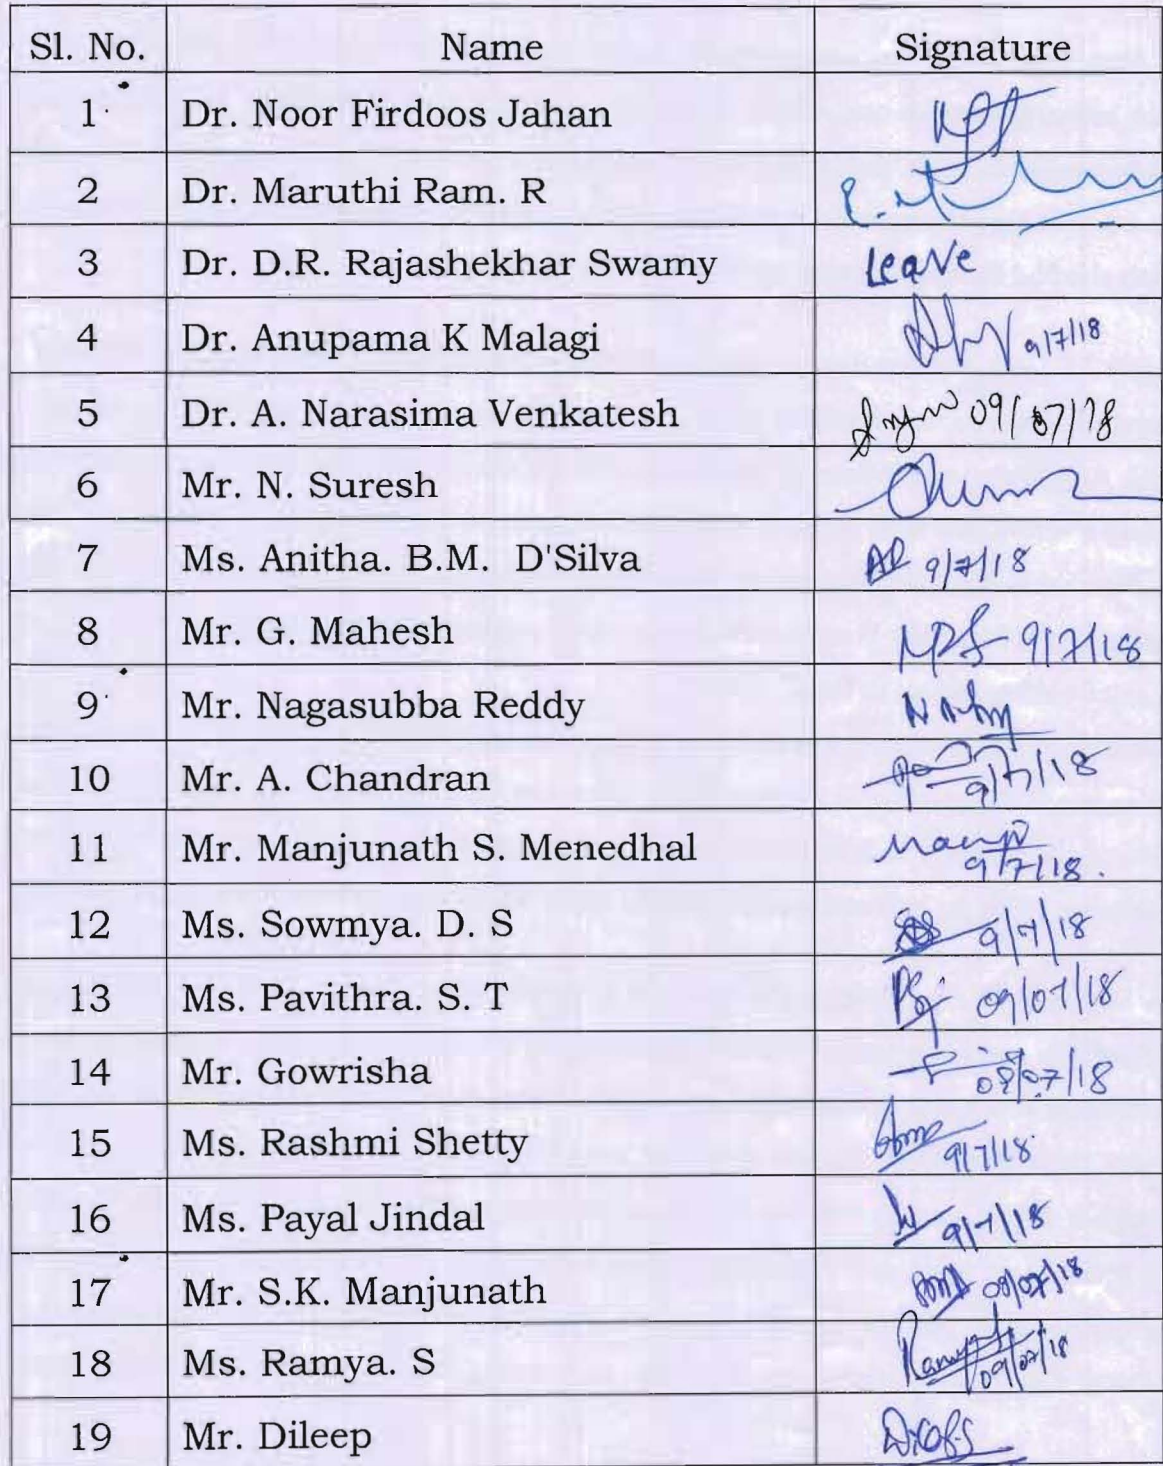 Sl. No. Name Signature
1 Dr. Noor Firdoos Jahan
2 Dr. Maruthi Ram. R
3 Dr. D.R. Rajashekhar Swamy Leave
4 Dr. Anupama K Malagi 9/7/18
5 Dr. A. Narasima Venkatesh 09/07/18
6 Mr. N. Suresh
7 Ms. Anitha. B.M. D'Silva 9/7/18
8 Mr. G. Mahesh 9/7/18
9 Mr. Nagasubba Reddy
10 Mr. A. Chandran 9/7/18
11 Mr. Manjunath S. Menedhal 9/7/18.
12 Ms. Sowmya. D. S 9/7/18
13 Ms. Pavithra. S. T 09/07/18
14 Mr. Gowrisha 09/07/18
15 Ms. Rashmi Shetty 9/7/18
16 Ms. Payal Jindal 9/7/18
17 Mr. S.K. Manjunath 09/07/18
18 Ms. Ramya. S Ramya 09/07/18
19 Mr. Dileep